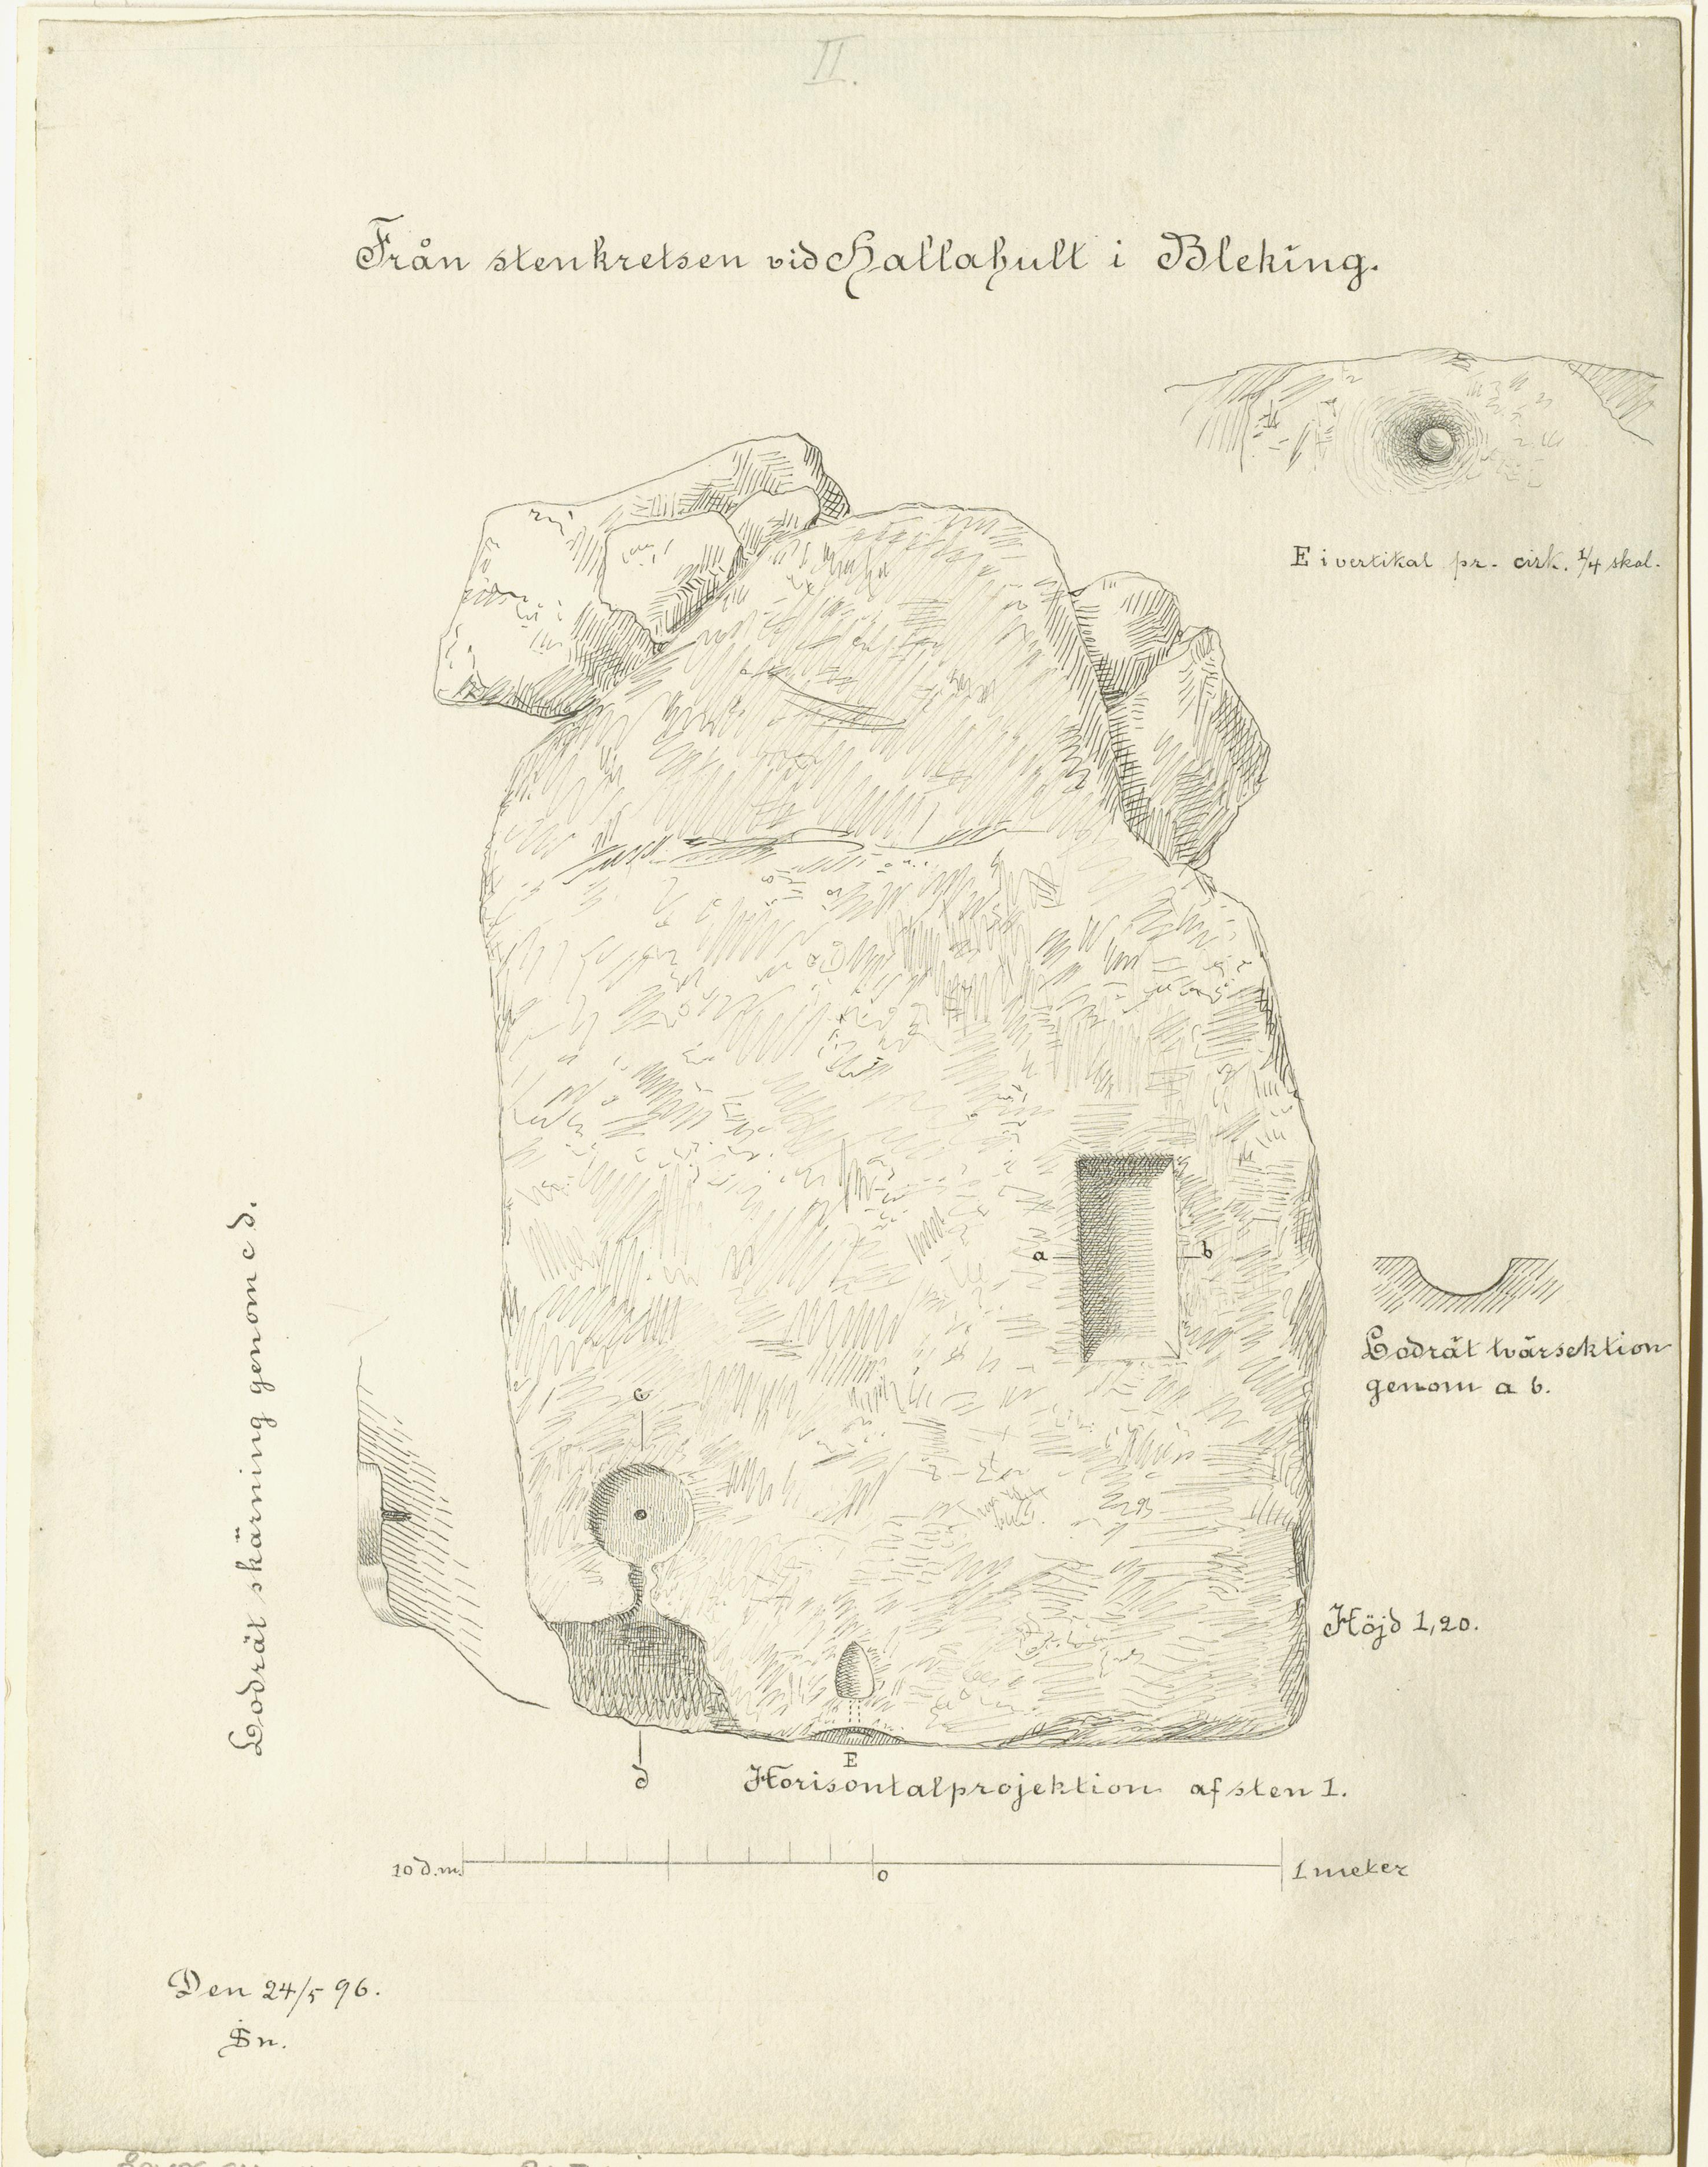 II.
Från stenkretsen vid Hallahult i Bleking.
E i vertikal pr. cirk. 1/4 skal.
a
b
Lodrät tvärsektion
genom a b.
Lodrät skärning genom c d.
c
Höjd 1,20.
E
d
Horisontalprojektion af sten 1.
10 d.m.
0
1 meter
Den 24/5 96.
Sn.